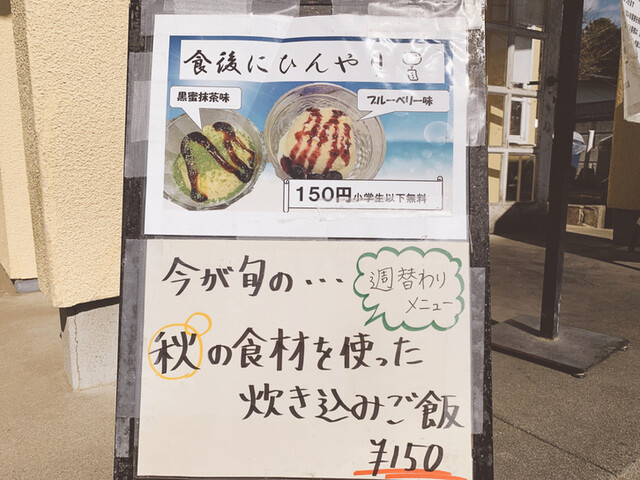 食後にひんやり
黒蜜抹茶味
ブルーベリー味
150円小学生以下無料
今が旬の・・・
週替わり
メニュー
秋の食材を使った
炊き込みご飯
¥150